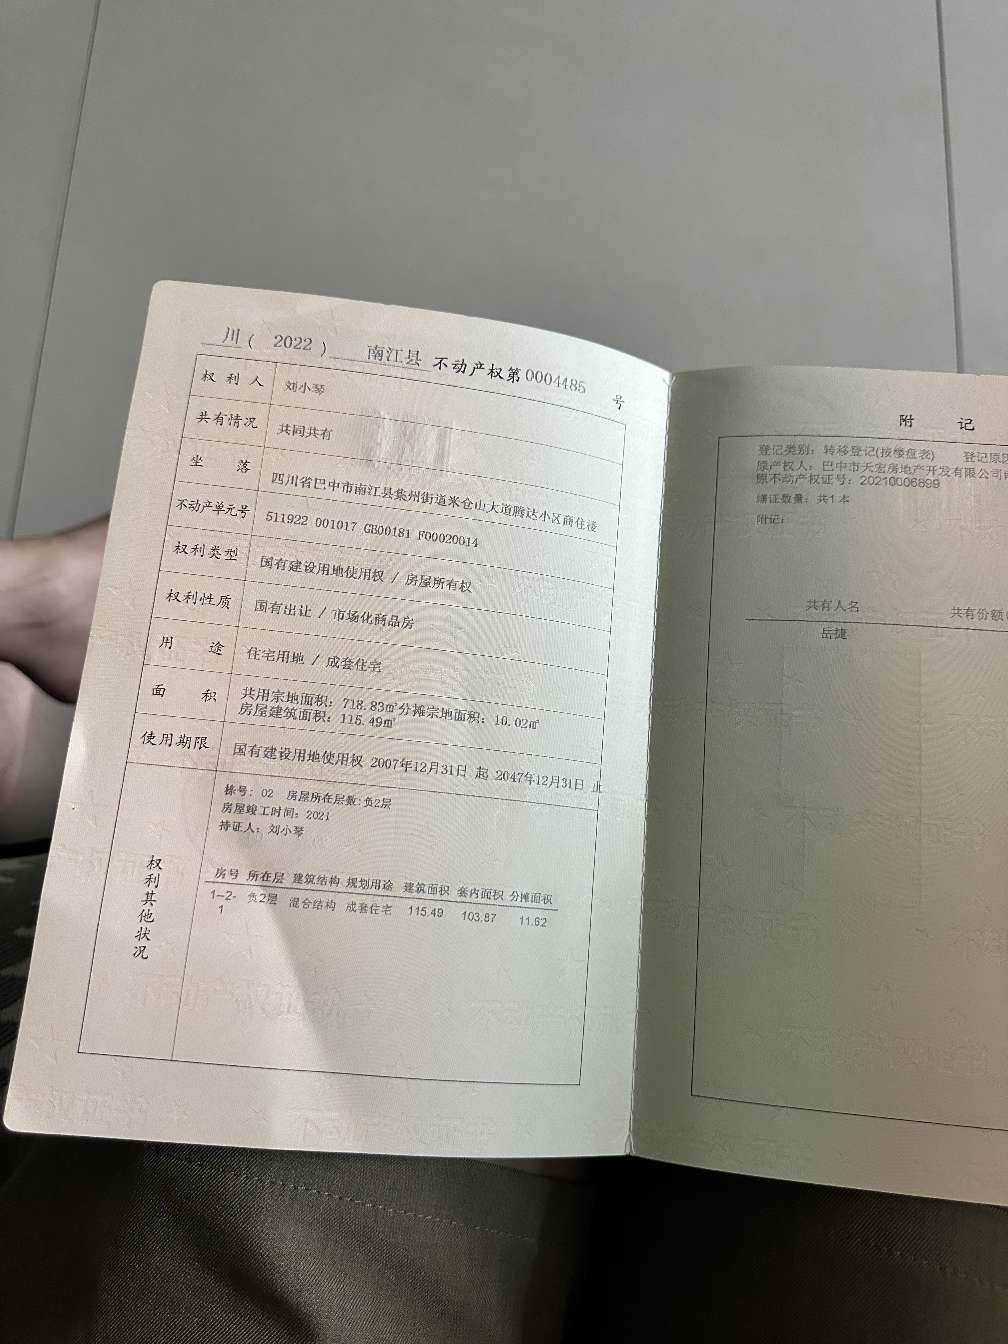 川（ 2022 ） 南江县 不动产权第0004485 号
权利人 刘小琴
共有情况 共同共有
坐落 四川省巴中市南江县集州街道米仓山大道腾达小区商住楼
不动产单元号 511922 001017 GB00181 F00020014
权利类型 国有建设用地使用权 / 房屋所有权
权利性质 国有出让 / 市场化商品房
用途 住宅用地 / 成套住宅
面积 共用宗地面积：718.83㎡分摊宗地面积：10.02㎡
房屋建筑面积：115.49㎡
使用期限 国有建设用地使用权 2007年12月31日 起 2047年12月31日 止
权利其他状况
栋号：02 房屋所在层数:负2层
房屋竣工时间：2021
持证人：刘小琴
房号 所在层 建筑结构 规划用途 建筑面积 套内面积 分摊面积
1--2-1 负2层 混合结构 成套住宅 115.49 103.87 11.62
附记
登记类别：转移登记(按楼盘表) 登记原因
原产权人：巴中市天宏房地产开发有限公司
原不动产权证号：20210006899
缮证数量：共1本
附记：
共有人名 共有份额
岳捷